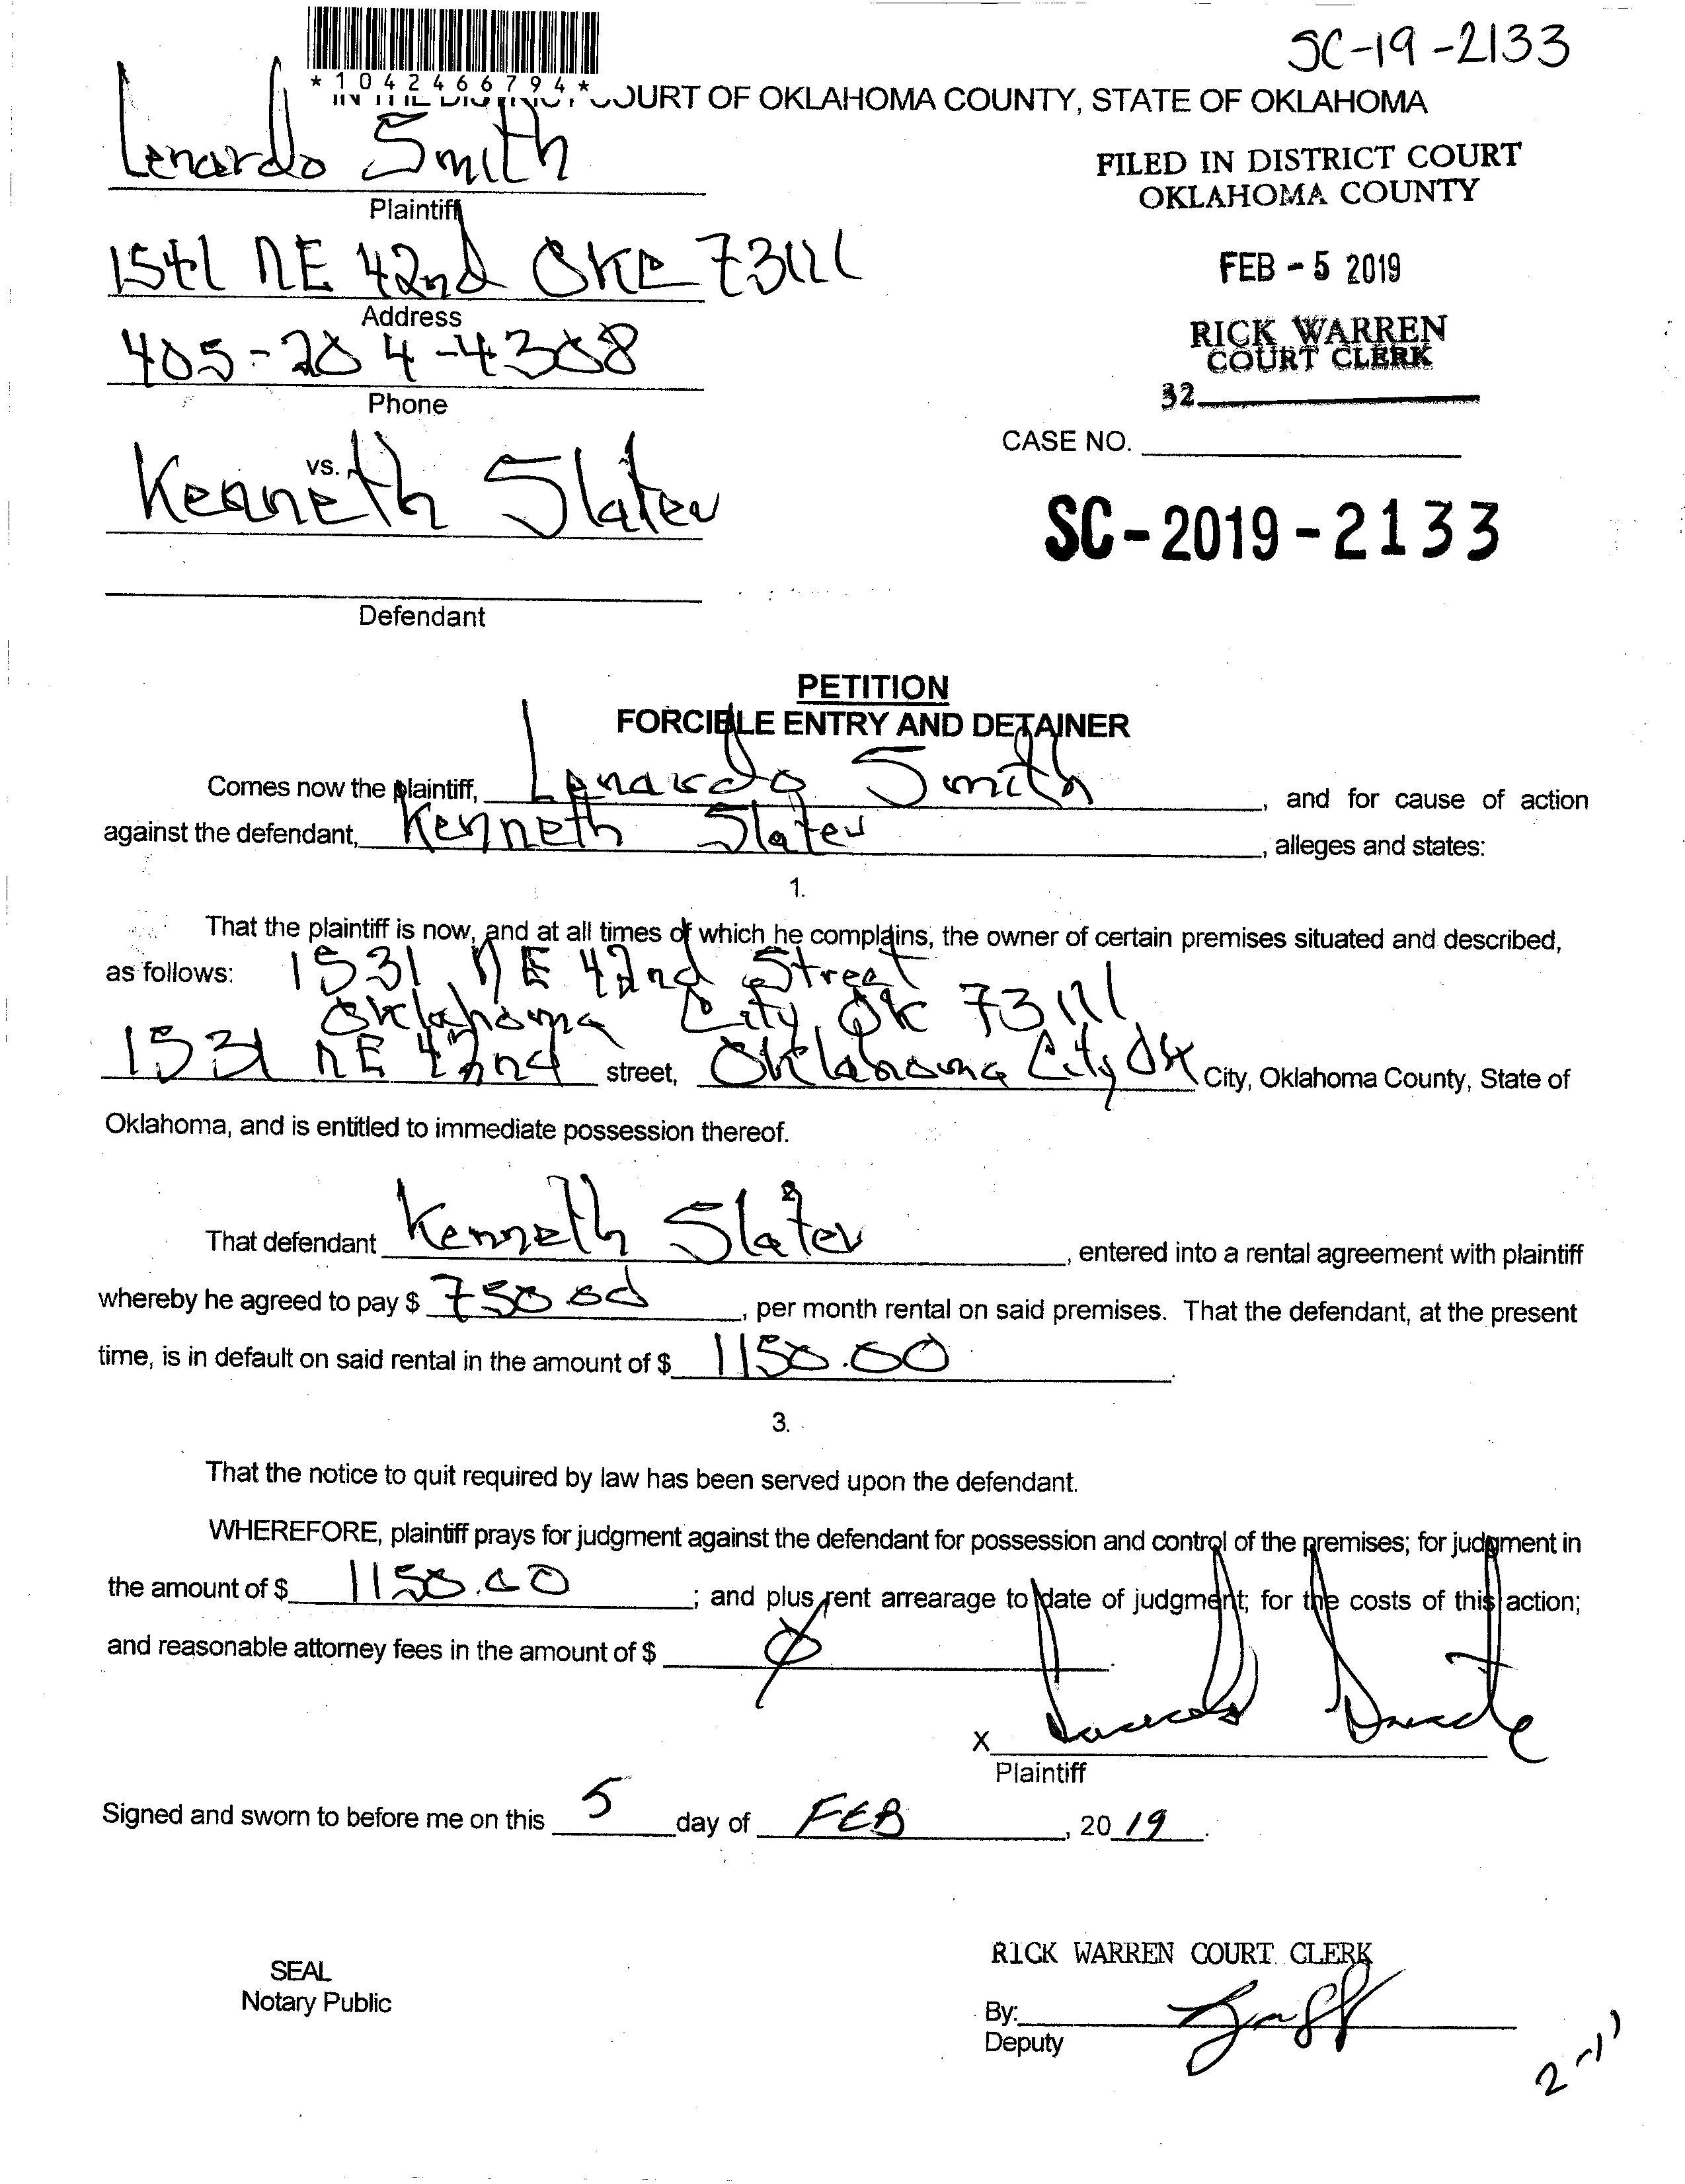 SC-19-2133
*1042466794*
IN THE DISTRICT COURT OF OKLAHOMA COUNTY, STATE OF OKLAHOMA
Lenardo Smith
Plaintiff
FILED IN DISTRICT COURT
OKLAHOMA COUNTY
1541 NE 42nd OKC 73111
Address
FEB - 5 2019
405-204-4308
Phone
RICK WARREN
COURT CLERK
32
CASE NO.
vs.
Kenneth Slater
SC-2019-2133
Defendant
PETITION
FORCIBLE ENTRY AND DETAINER
Comes now the plaintiff, Lenardo Smith, and for cause of action
against the defendant, Kenneth Slater, alleges and states:
1.
That the plaintiff is now, and at all times of which he complains, the owner of certain premises situated and described,
as follows: 1531 NE 42nd Street
Oklahoma City, OK 73111
1531 NE 42nd street, Oklahoma City OK City, Oklahoma County, State of
Oklahoma, and is entitled to immediate possession thereof.
2
That defendant Kenneth Slater, entered into a rental agreement with plaintiff
whereby he agreed to pay $ 750.00, per month rental on said premises. That the defendant, at the present
time, is in default on said rental in the amount of $ 1150.00.
3.
That the notice to quit required by law has been served upon the defendant.
WHEREFORE, plaintiff prays for judgment against the defendant for possession and control of the premises; for judgment in
the amount of $ 1150.00; and plus rent arrearage to date of judgment; for the costs of this action;
and reasonable attorney fees in the amount of $ Ø.
X Lenardo Smith
Plaintiff
Signed and sworn to before me on this 5 day of FEB, 20 19.
SEAL
Notary Public
RICK WARREN COURT CLERK
By:
Deputy